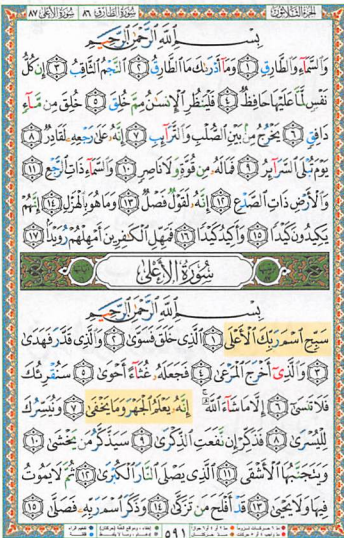 الجزء الثلاثون سورة الطارق ٨٦ سورة الأعلى ٨٧
بِسْمِ اللَّهِ الرَّحْمَٰنِ الرَّحِيمِ
وَالسَّمَاءِ وَالطَّارِقِ ١ وَمَا أَدْرَاكَ مَا الطَّارِقُ ٢ النَّجْمُ الثَّاقِبُ ٣ إِن كُلُّ
نَفْسٍ لَّمَّا عَلَيْهَا حَافِظٌ ٤ فَلْيَنظُرِ الْإِنسَانُ مِمَّ خُلِقَ ٥ خُلِقَ مِن مَّاءٍ
دَافِقٍ ٦ يَخْرُجُ مِن بَيْنِ الصُّلْبِ وَالتَّرَائِبِ ٧ إِنَّهُ عَلَىٰ رَجْعِهِ لَقَادِرٌ ٨
يَوْمَ تُبْلَى السَّرَائِرُ ٩ فَمَا لَهُ مِن قُوَّةٍ وَلَا نَاصِرٍ ١٠ وَالسَّمَاءِ ذَاتِ الرَّجْعِ ١١
وَالْأَرْضِ ذَاتِ الصَّدْعِ ١٢ إِنَّهُ لَقَوْلٌ فَصْلٌ ١٣ وَمَا هُوَ بِالْهَزْلِ ١٤ إِنَّهُمْ
يَكِيدُونَ كَيْدًا ١٥ وَأَكِيدُ كَيْدًا ١٦ فَمَهِّلِ الْكَافِرِينَ أَمْهِلْهُمْ رُوَيْدًا ١٧
سُورَةُ الْأَعْلَى
بِسْمِ اللَّهِ الرَّحْمَٰنِ الرَّحِيمِ
سَبِّحِ اسْمَ رَبِّكَ الْأَعْلَى ١ الَّذِي خَلَقَ فَسَوَّىٰ ٢ وَالَّذِي قَدَّرَ فَهَدَىٰ
٣ وَالَّذِي أَخْرَجَ الْمَرْعَىٰ ٤ فَجَعَلَهُ غُثَاءً أَحْوَىٰ ٥ سَنُقْرِئُكَ
فَلَا تَنسَىٰ ٦ إِلَّا مَا شَاءَ اللَّهُ ۚ إِنَّهُ يَعْلَمُ الْجَهْرَ وَمَا يَخْفَىٰ ٧ وَنُيَسِّرُكَ
لِلْيُسْرَىٰ ٨ فَذَكِّرْ إِن نَّفَعَتِ الذِّكْرَىٰ ٩ سَيَذَّكَّرُ مَن يَخْشَىٰ ١٠
وَيَتَجَنَّبُهَا الْأَشْقَى ١١ الَّذِي يَصْلَى النَّارَ الْكُبْرَىٰ ١٢ ثُمَّ لَا يَمُوتُ
فِيهَا وَلَا يَحْيَىٰ ١٣ قَدْ أَفْلَحَ مَن تَزَكَّىٰ ١٤ وَذَكَرَ اسْمَ رَبِّهِ فَصَلَّىٰ ١٥
٥٩١